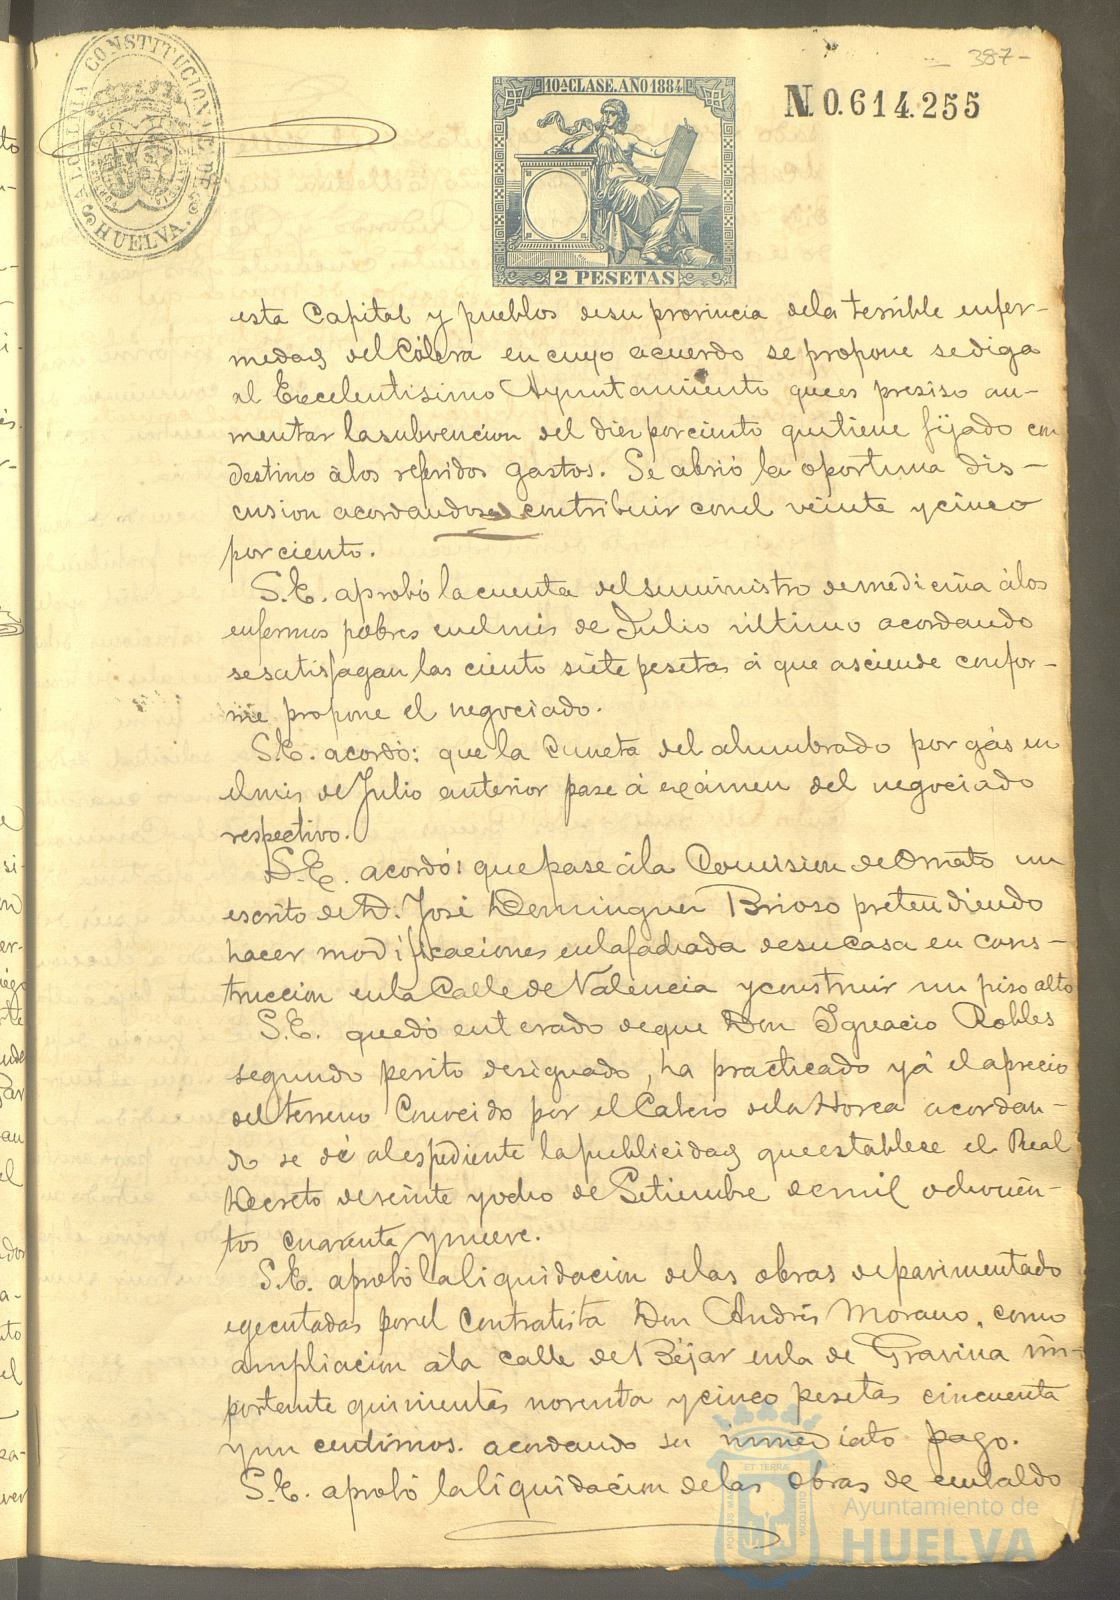 387-
ALCALDIA CONSTITUCIONAL DE HUELVA.
10ª CLASE. AÑO 1884
N. 0.614.255
2 PESETAS
esta Capital y pueblos desu provincia dela terrible enfer-
medad del Cólera en cuyo acuerdo se propone sediga
al Excelentisimo Ayuntamiento quees presiso au-
mentar lasubvencion del diez porciento quetiene fijado con
destino álos referidos gastos. Se abrió la oportuna dis-
cusion acordandose contribuir conel veinte ycinco
porciento.
S.E. aprobó lacuenta delsuministro demedicina álos
enfermos pobres enelmes de Julio último acordando
sesatisfagan las ciento siete pesetas á que asciende confor-
me propone el negociado.
S.E. acordó: que la Cuneta del alumbrado por gás en
elmes de Julio anterior pase á exámen del negociado
respectivo.
S.E. acordó: quepase ála Comision deOrnato un
escrito de D. José Dominguez Brioso pretendiendo
hacer modificaciones enlafachada desucasa en cons-
truccion enla Calle de Valencia yconstruir un piso alto
S.E. quedó enterado deque Don Ignacio Robles
segundo perito designado, ha practicado yá el aprecio
delterreno Conocido por el Cabezo dela Horca acordan-
do se dé alespediente lapublicidad queestablece el Real
Decreto deveinte yocho de Setiembre demil ochocien-
tos cuarenta ynueve.
S.E. aprobó laliquidacion delas obras depavimentado
egecutadas porel Contratista Don Andrés Morano, como
ampliacion ála calle de Béjar enla de Gravina im-
portante quinientas noventa ycinco pesetas cincuenta
yun centimos. acordando su inmediato pago.
S.E. aprobó laliquidacion delas obras de embaldo
Ayuntamiento de
HUELVA